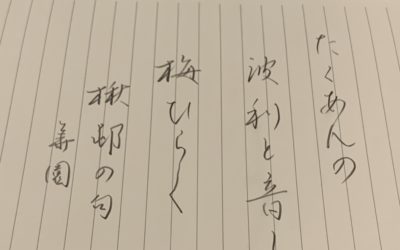 たくあんの
波利と音し
梅ひらく
楸邨の句
華園